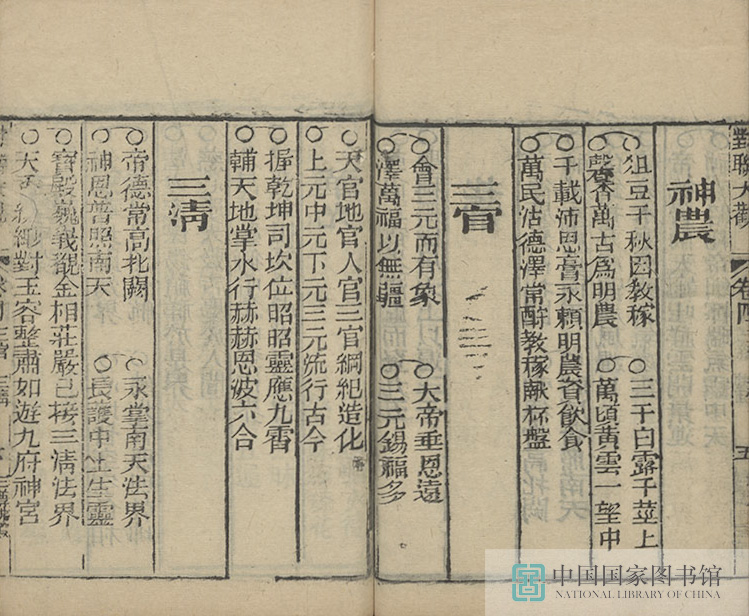 對聯大觀 卷四 五
神農
俎豆千秋因敎稼
三千白露千莖上
馨香萬古爲明農
萬頃黃雲一望中
千載沛恩膏永頼明農資飮食
萬民沽德澤常酧教稼献杯盤
三官
會三元而有象
大帝垂恩遠
澤萬福以無疆
三元錫福多
天官地官人官三官綱紀造化
上元中元下元三元流行古今
握乾坤司坎位昭昭靈應九霄
輔天地掌水行赫赫恩波六合
三清
帝德常高北闕
永掌南天法界
神恩普照南天
長護中土生靈
寶殿巍義覩金相莊嚴已接三清法界
對玉容整肅如遊九府神宮
中国国家图书馆
NATIONAL LIBRARY OF CHINA